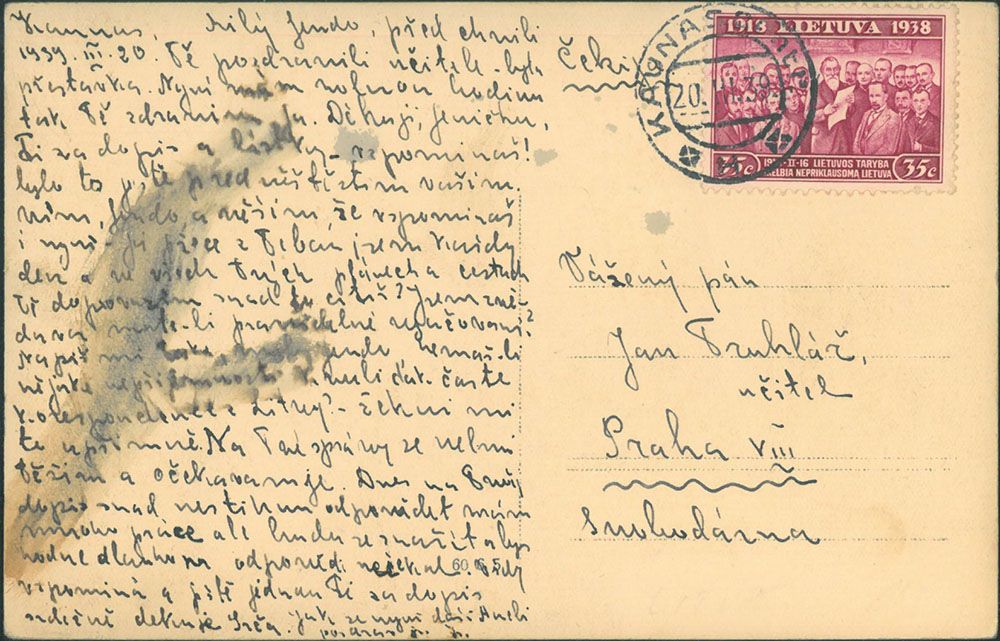 Kaunas, Milý Jendo, před chvílí
1939. III. 20. Tě pozdravili učitelé - byla
přestávka. Nyní mám volnou hodinu
tak Tě zdravím já. Děkuji, Jeníčku,
Ti za dopis a lístky vzpomínáš!
bylo to ještě před neštěstím vaším
vím, Jendo, a těším že vzpomínáš
i nyní. Já přece z Tebou jsem každý
den a ve všech Tvých plánech a cestách
Tě doprovázím snad to cítíš? Jsem zvě-
dava máte-li pravidelné vyučování?
Napiš mi také Jendo, nemáš-li
nějaké nepříjemnosti kvůli tak časté
korespondenci z Litvy? - řekni mi
to upřímně. Na Tvé zprávy se velmi
těším a očekávám je. Dnes na Tvůj
dopis snad nestihnu odpovědět mám
mnoho práce ale budu se snažit abys
hodně dlouho na odpověď nečekal. Vždy
vzpomíná a ještě jednou Ti za dopis
srdečně děkuje
jak se nyní daří
pozdrav
60 6 5
Čeki
KAUNAS
20. 39
1918 LIETUVA 1938
II-16 LIETUVOS TARYBA
SKELBIA NEPRIKLAUSOMĄ LIETUVĄ
35c 35c
Vážený pán
Jan Truhlář,
učitel
Praha VIII
Svobodárna